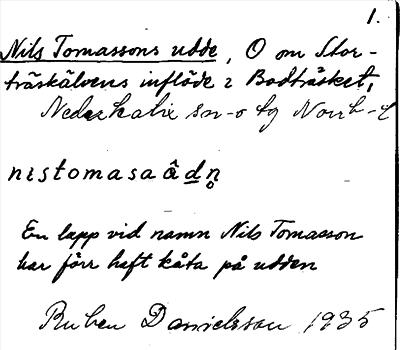 1.
Nils Tomassons udde, O om Stor-
träskälvens inflöde i Bodträsket,
Nederkalix sn-o tg Norrb-l
nistomasaâdn̥
En lapp vid namn Nils Tomasson
har förr haft kåta på udden
Ruben Danielsson 1935